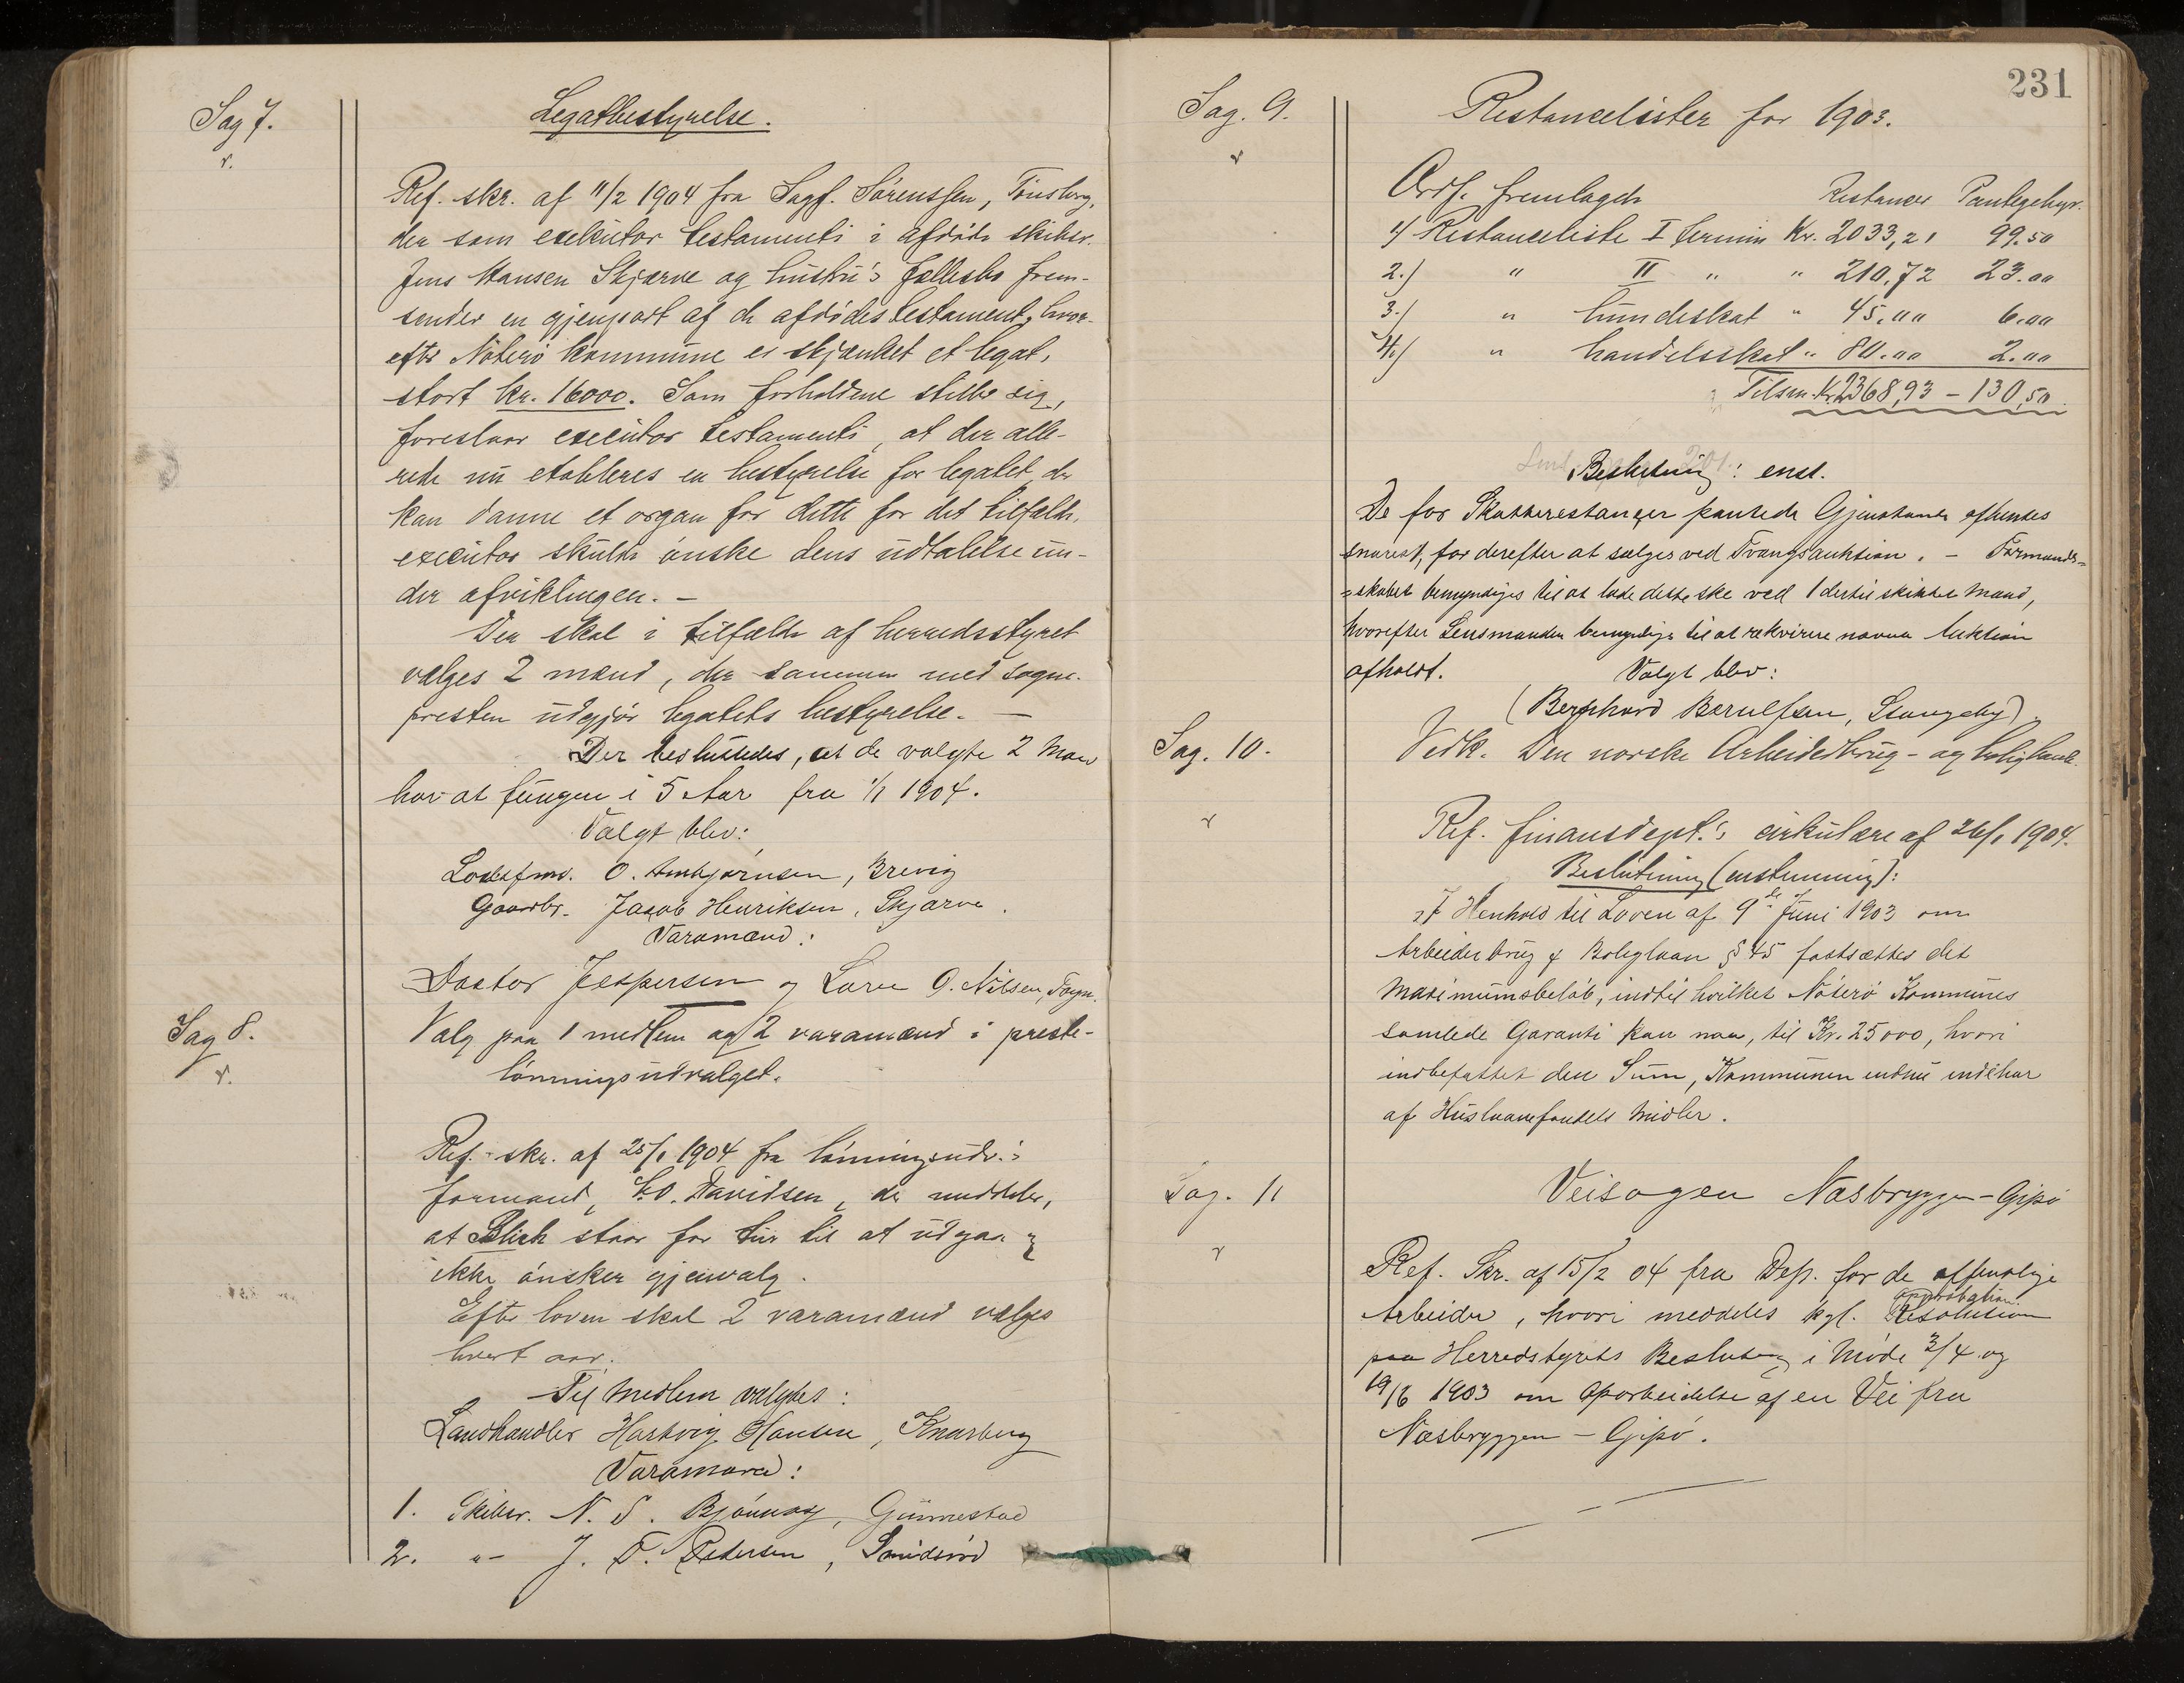 Sag 7.
Legatbestyrelse.
Ref. skr. af 11/2 1904 fra Sagf. Sørenssen, Tønsberg,
der som exekutor testamenti i afdøde skibsr.
Jens Hansen Skjærve og hustru's fællesbo frem-
sender en gjenpart af de afdødes testament, hvor-
efter Nøterø kommune er skjænket et legat,
stort kr. 16000. Som forholdene stiller sig,
foreslaar executor testamenti, at der alle-
rede nu etableres en bestyrelse for legatet, der
kan danne et organ for dette for det tilfælde,
executor skulde ønske dens udtalelse un-
der afviklingen. -
Der skal i tilfælde af herredsstyret
vælges 2 mænd, der sammen med sogne-
presten udgjør legatets bestyrelse. -
Der besluttedes, at de valgte 2 Mænd
har at fungere i 5 Aar fra 1/1 1904.
Valgt blev:
O. Anbjørnsen, Brevig
Gaardbr. Jacob Henriksen, Skjærve.
Varamænd:
Doctor Jespersen og Lars O. Nilsen,
Sag 8.
Valg paa 1 medlem og 2 varamænd i preste-
lønningsudvalget.
Ref. skr. af 25/1 1904 fra lønningsudv.'s
formand, Davidsen, der meddeler,
at Blich staar for tur til at udgaa og
ikke ønsker gjenvalg.
Efter loven skal 2 varamænd vælges
hvert aar.
Til Medlem valgtes:
Landhandler Hartvig Hansen, Knarberg
Varamænd:
1. Skibsr. N. S. Bjønnes, Gunnestad
2. "- J. F. Pedersen, Smidsrød
231
Sag. 9.
Restancelister for 1903.
Ordf. fremlagde Restancer Pantegebyr.
1) Restanceliste I termin Kr. 2033,21 99.50
2.) " II " " 210.72 23.00
3.) " hundeskat " 45.00 6.00
4.) " handelsskat " 80.00 2.00
Tilsm. Kr. 2368,93 - 130,50
Beslutning: enst.
De for Skatterestancer pantede Gjenstande afhentes
snarest, for derefter at sælges ved Tvangsauktion. - Formands-
=skabet bemyndiges til at lade dette ske ved 1 dertil skikket Mand,
hvorefter Lensmanden bemyndiges til at rekvirere nævnte Auktion
afholdt. Valgt blev:
(Bernhard Berulfsen, )
Sag. 10.
Vedk. Den norske Arbeiderbrug- og boligbank.
Ref. finansdept.'s cirkulære af 26/1 1904.
Beslutning (enstemmig):
"I Henhold til Loven af 9de Juni 1903 om
Arbeiderbrug & Boliglaan § 45 fastsættes det
Maximumsbeløb, indtil hvilket Nøterø Kommunes
samlede Garanti kan naa, til Kr. 25000, hvori
indbefattet den Sum, Kommunen endnu indehar
af Huslaanefondets Midler.
Sag. 11
Veisagen Næsbryggen - Gipø
Ref. Skr. af 15/2 04 fra Dep. for de offentlige
Arbeider, hvori meddeles kgl. Resolution
approbation
paa Herredstyrets Beslutning i Møde 3/4 og
19/6 1903 om Oparbeidelse af en Vei fra
Næsbryggen - Gipø.